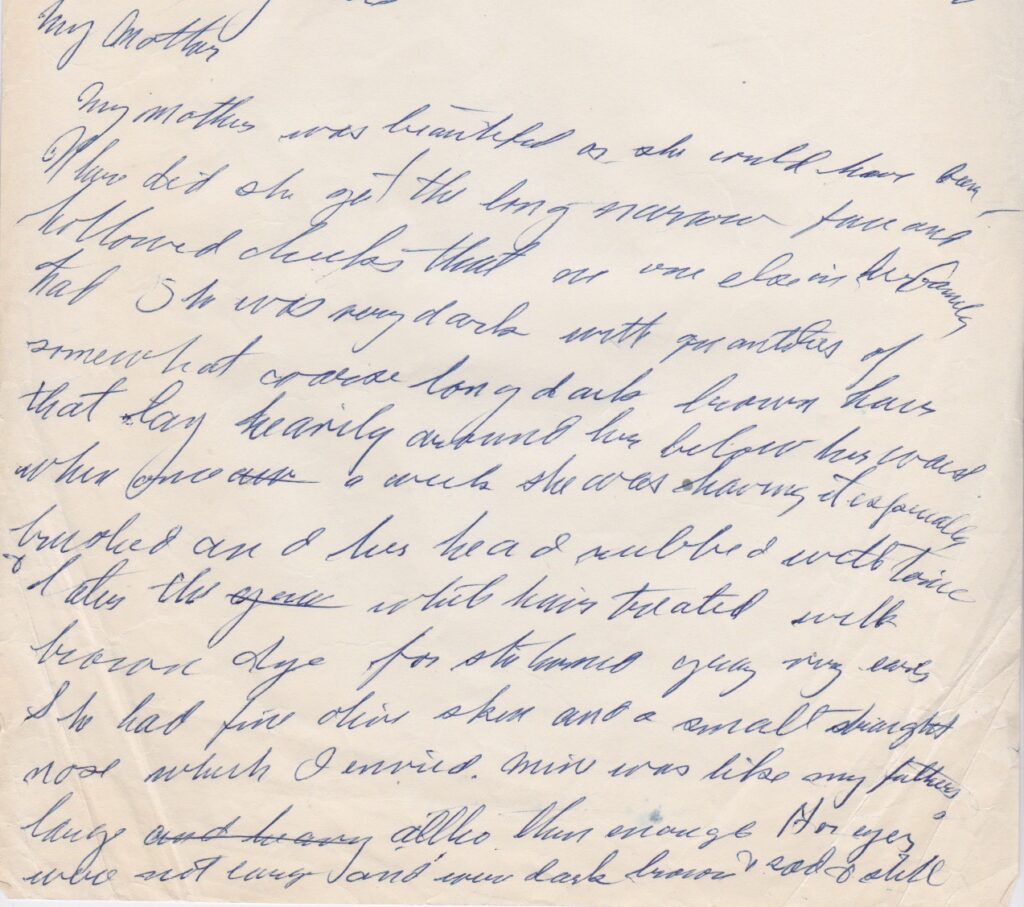 My Mother
My mother was beautiful as she could have been –
Where did she get the long narrow face and
hollowed cheeks that no one else in her family
had She was very dark with quantities of
somewhat coarse long dark brown hair
that lay heavily around her below her waist
when once a week she was having it especially
brushed and her head rubbed with tonic
& later the white hairs treated with
brown dye for she turned gray very early
She had fine olive skin and a small straight
nose which I envied. Mine was like my fathers,
large and heavy altho thin enough Her eyes
were not large and were dark brown & sad & still